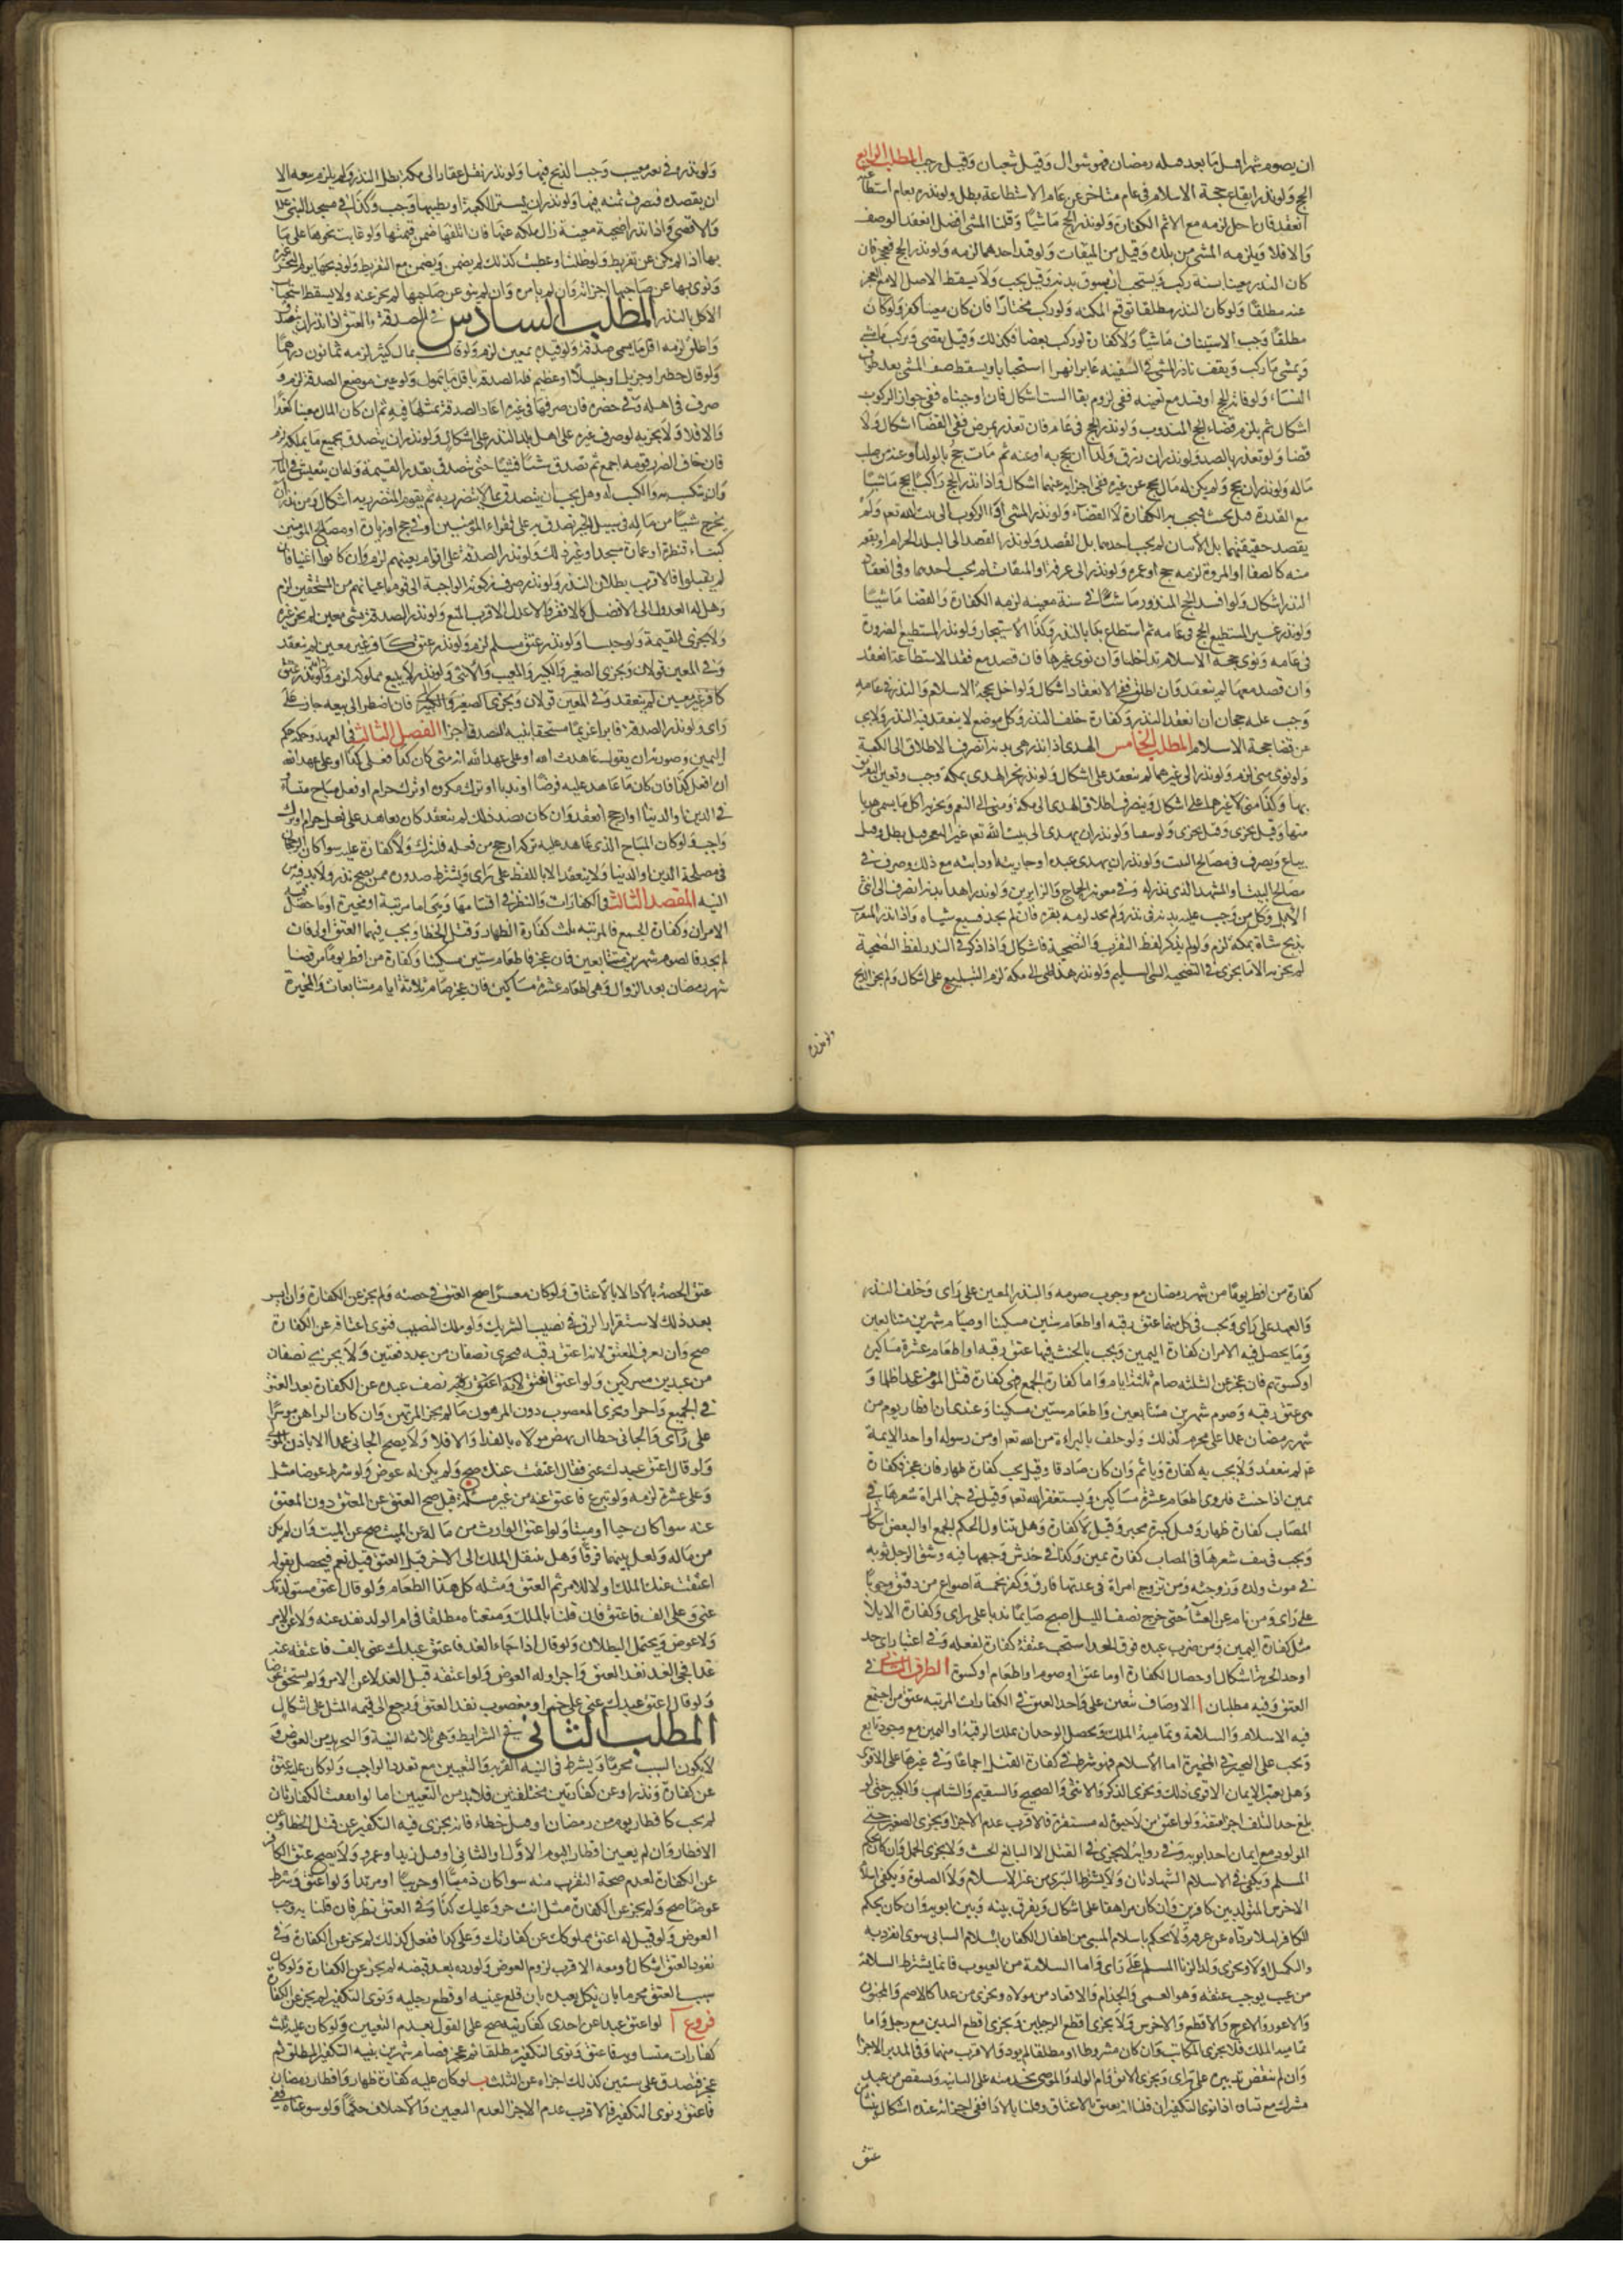 ان يصوم شهرا قبل ما بعد قبله رمضان فهو شوال وقيل شعبان وقيل رجب المطلب الرابع
الحج ولو نذر ايقاع حجة الاسلام في عام متاخر عن عام الاستطاعة بطل ولو نذره بعام استطاعته
انعقد فان اخل لزمه مع الاثم الكفارة ولو نذر الحج ماشيا وقلنا المشي افضل انعقد الوصف
والا فلا ويلزمه المشي من بلده وقيل من الميقات ولو قيد احدهما لزمه ولو نذر الحج فعجز فان
كان النذر معينا بسنة ركب ويستحب ان يسوق بدنة وقيل يجب ولا يسقط الاصل الا مع العجز
عنه مطلقا ولو كان النذر مطلقا توقع المكنة ولو ركب مختارا فان كان معينا كفر ولو كان
مطلقا وجب الاستيناف ماشيا ولا كفارة ولو ركب بعضا فكذلك وقيل يقضي ويركب ما مشى
ويمشي ما ركب ويقف ناذر المشي في السفينة عابرا نهرا استحبابا ويسقط المشي بعد طواف
النساء ولو فاته الحج او فسد مع تعينه ففي لزوم بقاء الست اشكال فان اوجبناه ففي جواز الركوب
اشكال ثم يلزمه قضاء الحج المندوب ولو نذر الحج في عامه فان تعذر بمرض ففي القضاء اشكال ولا
قضا ولو تعذر بالصد ولو نذر ان رزق ولدا ان يحج به او عنه ثم مات حج بالولد او عنه من صلب
ماله ولو نذر ان يحج ولم يكن له مال فحج عن غيره ففي اجزائه عنهما اشكال واذا نذر الحج راكبا فحج ماشيا
مع القدرة قيل يحنث فتجب به الكفارة لا القضاء ولو نذر المشي او الركوب الى بيت الله تعالى ولم
يقصد حقيقتهما بل الاتيان لم يجب احدهما بل القصد ولو نذر القصد الى البلد الحرام او بقعة
منه كالصفا او المروة لزمه حج او عمرة ولو نذر الى عرفة او الميقات لم يجب احدهما وفي انعقاد
النذر اشكال ولو افسد الحج المنذور ماشيا في سنة معينة لزمه الكفارة والقضا ماشيا
ولو نذر غير المستطيع الحج في عامه ثم استطاع بدا بالنذر وكذا الاستيجار ولو نذر المستطيع الصرورة
في عامه ونوى حجة الاسلام تداخلا وان نوى غيرها فان قصد مع فقد الاستطاعة انعقد
وان قصد معها لم ينعقد وان اطلق ففي الانعقاد اشكال ولو اخل بحجة الاسلام والنذر في عامه
وجب عليه حجان ان انعقد النذر وكفارة خلف النذر وكل موضع لا ينعقد فيه النذر ولا بد
من قضا حجة الاسلام المطلب الخامس الهدي اذا نذر هدي بدنة انصرف الاطلاق الى الكعبة
ولو نوى منى لزم ولو نذر الى غيرهما لم ينعقد على اشكال ولو نذر نحر الهدي بمكة وجب وتعين التفريق
بها وكذا منى لا غيرهما على اشكال وينصرف اطلاق الهدي الى مكة ومنى الى النعم ويجزي اقل ما يسمى هديا
منها وقيل يجزي وقيل يجزي ولو بيضا ولو نذر ان يهدي الى بيت الله تعالى غير النعم قيل بطل وقيل
يباع ويصرف في مصالح البيت ولو نذر ان يهدي عبده او جاريته او دابته مع ذلك وصرف في
مصالح البيت او المشهد الذي نذر له وفي معونة الحجاج والزايرين ولو نذر اهداء بدنة انصرف الى انثى
الابل وكل من وجب عليه بدنة في نذر ولم يجد لزمه بقرة فان لم يجد فسبع شياه واذا نذر التقرب
بذبح شاة بمكة لزم ولو لم يذكر لفظ التقرب والتضحية فاشكال واذا ذكر في النذر لفظ التضحية
لم يجزئه الا ما يجزي في التضحية الثني السليم ولو نذر هذا الى مكة لزم التبليغ على اشكال ولم يجز الذبح
ولو نذره
ولو نذره في نعم معيب وجب الذبح فيها ولو نذر نقل عقار الى مكة بطل النذر ولم يلزم بيعه الا
ان يقصد فتصرف ثمنه فيها ولو نذر ان يستر الكعبة او يطيبها وجب وكذا في مسجد النبي
والاقصى واذا نذر اضحية معينة زال ملكه عنها فان اتلفها ضمن قيمتها ولو عابت نحرها على ما
بها اذا لم يكن عن تفريط ولو ضلت او عطبت كذلك لم يضمن ويضمن مع التفريط ولو ذبحها يوم النحر غيره
ونوى بها عن صاحبها اجزاته وان لم يامره وان لم ينو عن صاحبها لم يجز عنه ولا يسقط استحباب
الاكل بالنذر المطلب السادس في الصدقة والعتق اذا نذر ان يتصدق
واطلق لزمه اقل ما يسمى صدقة ولو قيده بمعين لزم ولو قال بمال كثير لزمه ثمانون درهما
ولو قال خطير او جزيل او جليل او عظيم فله الصدقة باقل ما يتمول ولو عين موضع الصدقة لزم و
صرف في اهله وفي حضره فان صرفها في غيره اعاد الصدقة بمثلها فيه ثم ان كان المال معينا كفر
والا فلا ولا يجزيه لو صرف غيره على اهل بلد النذر على اشكال ولو نذر ان يتصدق بجميع ما يملكه لزم
فان خاف الضرر قومه اجمع ثم تصدق شيئا فشيئا حتى يتصدق بقدر القيمة وله ان يتعيش في المال
وان يتكسب به والكسب له وهل يجب ان يتصدق بما لا يتضرر به ثم يقوم المتضرر به اشكال ومن نذر ان
يخرج شيئا من ماله في سبيل الخير تصدق به على فقراء المؤمنين او في حج او زيارة او مصالح المؤمنين
كبناء قنطرة او عمارة مسجد او غير ذلك ولو نذر الصدقة على اقوام بعينهم لزم وان كانوا اغنيا فان
لم يقبلوا فالاقرب بطلان النذر ولو نذر صرف زكوته الواجبة الى قوم باعيانهم من المستحقين لزم
وهل له العدول الى الافضل كالافقر والاعدل الاقرب المنع ولو نذر الصدقة بشي معين لم يجز غيره
ولا يجزي القيمة ولو نذر عتق مسلم لزم ولو نذر عتق كافر غير معين لم ينعقد
وفي المعين قولان ويجزي الصغير والكبير والمعيب والانثى ولو نذر الا يبيع مملوكه لزم ولو نذر عتق
كافر غير معين لم ينعقد وفي المعين قولان ويجزي الصغير والكبير فان اضطر الى بيعه جاز على
راي ولو نذر الصدقة فابرا غريما مستحقا بنية التصدق اجزا الفصل الثالث في العهد وحكمه حكم
اليمين وصورته ان يقول عاهدت الله او علي عهد الله انه متى كان كذا فعلي كذا او علي عهد الله
ان افعل كذا فان كان ما عاهد عليه فرضا او ندبا او ترك مكروه او ترك حرام او فعل مباح متساو
في الدين او الدنيا او ارجح انعقد وان كان بضد ذلك لم ينعقد كان يعاهد على فعل حرام او ترك
واجب ولو كان المباح الذي عاهد عليه تركه ارجح من فعله فليترك ولا كفارة عليه سوا كان الرجحان
في مصلحة الدين او الدنيا ولا ينعقد الا باللفظ على راي ويشترط صدوره ممن يصح نذره ولا بد فيه من
النية المقصد الثالث في الكفارات والنظر في اقسامها وهي اما مرتبة او مخيرة او ما حصل فيه
الامران وكفارة الجمع فالمرتبة ثلث كفارة الظهار وقتل الخطا ويجب فيهما العتق اولا فان
لم يجد فالصوم شهرين متتابعين فان عجز فاطعام ستين مسكينا وكفارة من افطر يوما من قضا
شهر رمضان بعد الزوال وهي اطعام عشرة مساكين فان عجز صام ثلاثة ايام متتابعات والمخيرة
كفارة من افطر يوما من شهر رمضان مع وجوب صومه والنذر المعين على راي وخلف النذر
والعهد على راي ويجب في كل منها عتق رقبة او اطعام ستين مسكينا او صيام شهرين متتابعين
وما يحصل فيه الامران كفارة اليمين ويجب بالحنث فيها عتق رقبة او اطعام عشرة مساكين
او كسوتهم فان عجز عن الثلثة صام ثلثة ايام واما كفارة الجمع فهي كفارة قتل المؤمن عمدا ظلما و
هي عتق رقبة وصوم شهرين متتابعين واطعام ستين مسكينا وعندي ان افطار يوم من
شهر رمضان عمدا على محرم كذلك ولو حلف بالبراءة من الله تعالى او من رسوله او احد الايمة
ع لم ينعقد ولا يجب به كفارة وياثم وان كان صادقا وقيل يجب كفارة ظهار فان عجز فكفارة
يمين اذا حنث وروي اطعام عشرة مساكين ويستغفر الله تعالى وقيل في جز المراة شعرها في
المصاب كفارة ظهار وقيل كبيرة مخيرة وقيل لا كفارة وهل يتناول الحكم الجمع او البعض اشكال
ويجب في نتف شعرها في المصاب كفارة يمين وكذا في خدش وجهها فيه وشق الرجل ثوبه
في موت ولده وزوجته ومن تزوج امراة في عدتها فارق وكفر بخمسة اصواع من دقيق وجوبا
على راي ومن نام عن العشاء حتى خرج نصف الليل اصبح صايما ندبا على راي وكفارة الايلا
مثل كفارة اليمين ومن ضرب عبده فوق الحد استحب عتقه كفارة لفعله وفي اعتبار اي حد
او حد الحرية اشكال وخصال الكفارة اما عتق او صوم او اطعام او كسوة الطرف الثاني في
العتق وفيه مطلبان ا الاوصاف يتعين على واجد العتق في الكفارات المرتبة عتق من اجتمع
فيه الاسلام والسلامة وتمامية الملك ويحصل الوجدان بملك الرقبة او الثمن مع وجود بايع
ويجب على المخير في المخيرة اما الاسلام فهو شرط في كفارة القتل اجماعا وفي غيرها على الاقوى
وهل يعتبر الايمان الاقوى ذلك ويجزي الذكر والانثى والصحيح والسقيم والشاب والكبير حتى لو
بلغ حد التلف اجزا عتقه ولو اعتق من لا حيوة له مستقرة فالاقرب عدم الاجزا ويجزي الصغير حتى
المولود مع ايمان احد ابويه وفي رواية لا يجزي في القتل الا البالغ الحنث ولا يجزي الحمل وان كان بحكم
المسلم ويكفي في الاسلام الشهادتان ولا يشترط التبري من غير الاسلام ولا الصلوة ويكفي اسلام
الاخرس المتولد بين كافرين وان كان مراهقا على اشكال ويفرق بينه وبين ابويه وان كان بحكم
الكافر لئلا يرداه عن عزمه ولا يحكم باسلام المسبي من اطفال الكفار باسلام السابي سوى انفرد به
ويجزي ولد الزنا المسلم على راي واما السلامة من العيوب فانما يشترط السلامة
من عيب يوجب عتقه وهو العمى والجذام والاقعاد من مولاه ويجزي من عداه كالاصم والمجنون
والاعور والاعرج والاقطع والاخرس ولا يجزي اقطع الرجلين ويجزي اقطع اليدين مع رجل واما
تمامية الملك فلا يجزي المكاتب وان كان مشروطا او مطلقا لم يود والاقرب منهما وفي المدبر الاجزا
وان لم ينقض تدبيره على راي ويجزي الابق وام الولد والموصى بخدمته على التابيد وشقص من عبد
مشترك مع يساره اذا نوى التكفير ان قلنا انه يعتق بالاعتاق وقلنا بالادا ففي اجزائه عنده اشكال ينشا من
عتق
عتق الحصة بالادا لا بالاعتاق ولو كان معسرا صح العتق في حصته ولم يجز عن الكفارة وان ايسر
بعد ذلك لاستقرار الرق في نصيب الشريك ولو ملك النصيب فنوى اعتاقه عن الكفارة
صح وان تفرق العتق لانه اعتق رقبة فيجزي نصفان من عبد دفعتين ولا يجزي نصفان
من عبدين مشتركين ولو اعتق نصف عبده عن الكفارة نفذ العتق
في الجميع واجزا ويجزي المغصوب دون المرهون ما لم يجز المرتهن وان كان الراهن موسرا
على راي والجاني خطا ان نهض مولاه بالفدا والا فلا ولا يصح الجاني عمدا الا باذن الولي
ولو قال اعتق عبدك عني فقال اعتقت عنك صح ولم يكن له عوض ولو شرط عوضا مثل
وعلي عشرة لزمه ولو تبرع فاعتق عنه من غير مسئلة قيل صح العتق عن المعتق دون المعتق
عنه سوا كان حيا او ميتا ولو اعتق الوارث من ماله عن الميت صح عن الميت وان لم يكن
من ماله ولعل بينهما فرقا وهل ينتقل الملك الى الامر قبل العتق قيل نعم فيحصل بقوله
اعتقت عنك الملك اولا للامر ثم العتق ومثله كل هذا الطعام ولو قال اعتق مستولدتك
عني وعلي الف فاعتق فان قلنا بالملك ومنعناه مطلقا في ام الولد نفذ عنه ولا عن الامر
ولا عوض ويحتمل البطلان ولو قال اذا جاء الغد فاعتق عبدك عني بالف فاعتقه عنه
غدا في الغد نفذ العتق واجزا وله العوض ولو اعتقه قبل الغد لا عن الامر ولم يستحق عوضا
ولو قال اعتق عبدك عني على خمر او مغصوب نفذ العتق ورجع الى قيمة المثل على اشكال
المطلب الثاني في الشرايط وهي ثلاثة النية والتجريد من العوض و
لا يكون السبب محرما ويشترط في النية القربة والتعيين مع تعدد الواجب ولو كان عليه عتق
عن كفارة ونذر او عن كفارتين مختلفتين فلا بد من التعيين اما لو اتفقت الكفارتان
لم يجب كافطار يوم من رمضان او قتل خطاء فانه يجزي فيه التكفير عن قتل الخطا وعن
الافطار وان لم يعين افطار اليوم الاول او الثاني او قتل زيد او عمرو ولا يصح عتق الكافر
عن الكفارة لعدم صحة التقرب منه سوا كان ذميا او حربيا او مرتدا ولو اعتق وشرط
عوضا صح ولم يجز عن الكفارة مثل انت حر وعليك كذا وفي العتق نظر فان قلنا به وجب
العوض ولو قيل له اعتق مملوكك عن كفارتك وعلي كذا ففعل كذلك لم يجز عن الكفارة وفي
نفوذ العتق اشكال ومعه الاقرب لزوم العوض ولو رده بعد قبضه لم يجز عن الكفارة ولو كان
سبب العتق محرما بان نكل بعبده بان قلع عينيه او قطع رجليه ونوى التكفير لم يجز عن الكفارة
فروع ا لو اعتق عبدا عن احدى كفارتيه صح على القول بعدم التعيين ولو كان عليه ثلث
كفارات متساوية فاعتق ونوى التكفير مطلقا ثم عجز فصام شهرين بنية التكفير المطلق ثم
عجز فتصدق على ستين كذلك اجزاه عن الثلث ب لو كان عليه كفارة ظهار وافطار رمضان
فاعتق ونوى التكفير فالاقرب عدم الاجزا لعدم التعيين والاختلاف حكما ولو سوغناه ففي